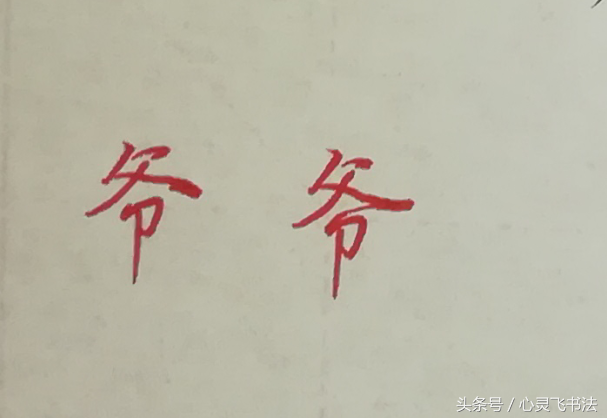 爷爷
头条号／心灵飞书法